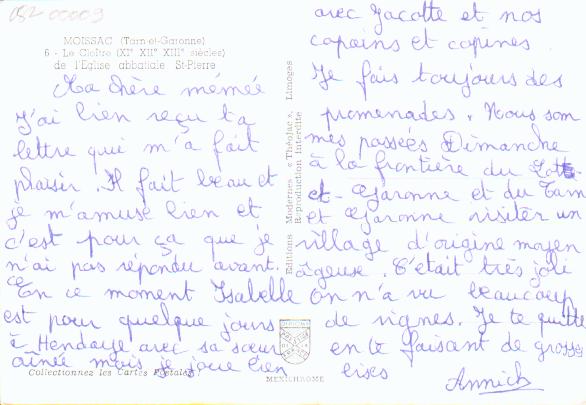 052 00009
MOISSAC (Tarn-et-Garonne)
6 - Le Cloître (XIe XIIe XIIIe siècles)
de l'Eglise abbatiale St-Pierre
Ma chère mémée
J'ai bien reçu ta
lettre qui m'a fait
plaisir. Il fait beau et
je m'amuse bien et
c'est pour ça que je
n'ai pas répondu avant.
En ce moment Isabelle
est pour quelque jours
à Hendaye avec sa sœur
aînée mais je joue bien
Collectionnez les Cartes Postales !
Editions Modernes « Théojac », Limoges
Reproduction interdite
MEXICHROME
avec Jacotte et nos
copains et copines
Je fais toujours des
promenades. Nous som
mes passées Dimanche
à la frontière du Lot
et Garonne et du Tarn
et Garonne visiter un
village d'origine moyen
âgeuse. C'était très joli
On n'a vu beaucoup
de vignes. Je te quitte
en te faisant de grosses
bises
Annick